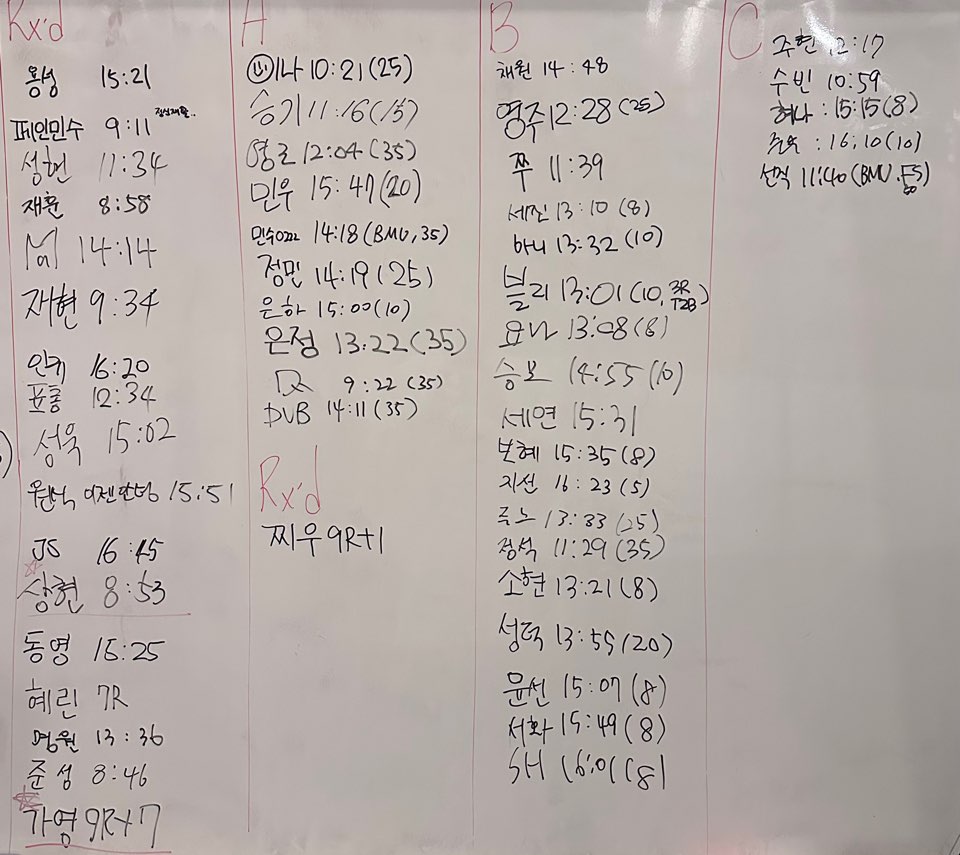 Rx'd
용성 15:21
페인민수 9:11
성현 11:34
재훈 8:58
14:14
재현 9:34
인키 16:20
표홍 12:34
성욱 15:02
원석 이젠안녕 15:51
JS 16:45
상현 8:53
동영 15:25
혜린 7R
명원 13:36
준성 8:46
가영 9R+17
A
이나 10:21(25)
승기 11:16(15)
영로 12:04(35)
민우 15:47(20)
민수 14:18(BMU,35)
정민 14:19(25)
은하 15:00(10)
은정 13:22(35)
9:22 (35)
DVB 14:11(35)
Rx'd
찌우 9R+1
B
채원 14:48
영주 12:28(25)
쭈 11:39
세진 13:10 (8)
하니 13:32 (10)
블리 13:01(10, 3R T2B)
요나 13:08(8)
승보 14:55(10)
세연 15:31
보혜 15:35(8)
지선 16:23(5)
주노 13:33 (25)
정석 11:29(35)
소현 13:21(8)
성덕 13:59(20)
윤선 15:07 (8)
서화 15:49(8)
SH 16:01(8)
C
주현 12:17
수빈 10:59
혜나 : 15:15(8)
16:10(10)
선적 11:40(BMU